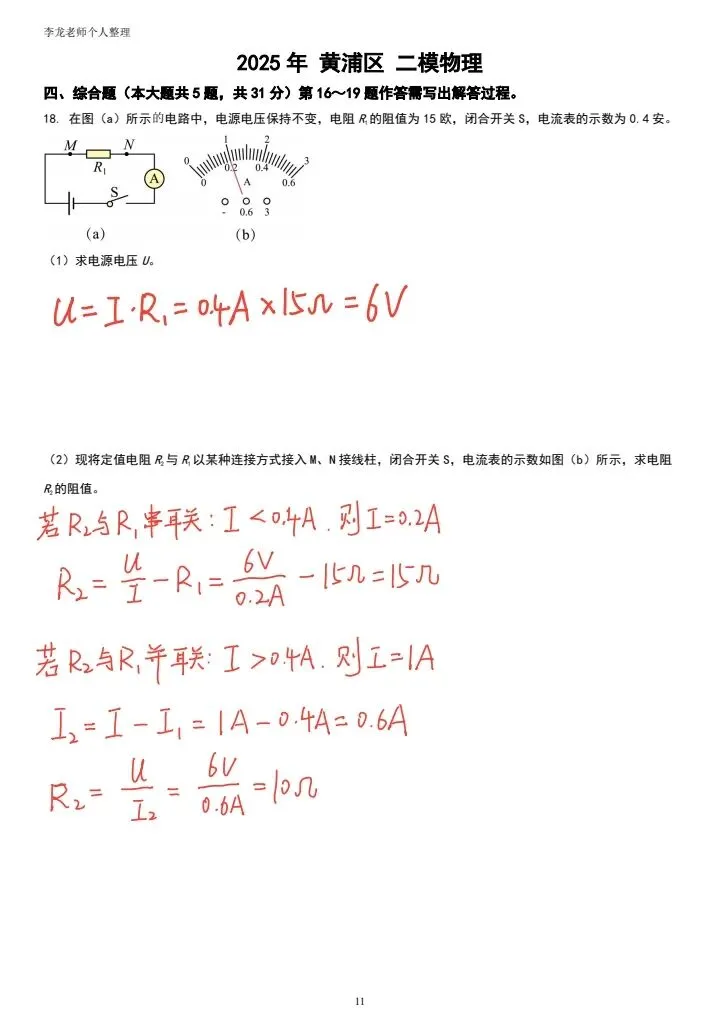 李龙老师个人整理
2025年 黄浦区 二模物理
四、综合题（本大题共5题，共31分）第16～19题作答需写出解答过程。
18. 在图（a）所示的电路中，电源电压保持不变，电阻R₁的阻值为15欧，闭合开关S，电流表的示数为0.4安。
M N
R₁
A
S
（a）
0 1 2 3
0 0.2 0.4 0.6
A
- 0.6 3
（b）
（1）求电源电压U。
U=I·R₁=0.4A×15Ω=6V
（2）现将定值电阻R₂与R₁以某种连接方式接入M、N接线柱，闭合开关S，电流表的示数如图（b）所示，求电阻
R₂的阻值。
若R₂与R₁串联：I<0.4A．则I=0.2A
R₂=U/I-R₁=6V/0.2A-15Ω=15Ω
若R₂与R₁并联：I>0.4A．则I=1A
I₂=I-I₁=1A-0.4A=0.6A
R₂=U/I₂=6V/0.6A=10Ω
11